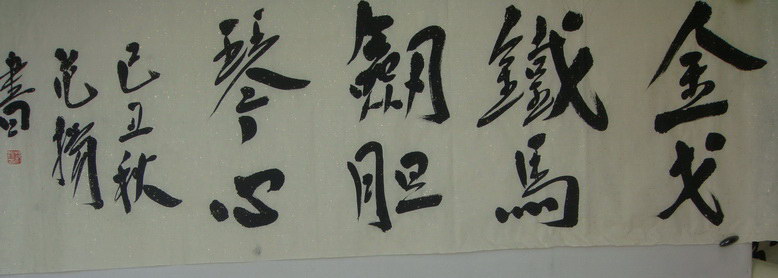 金戈
鐵馬
劒胆
琴心
己丑秋
范
書